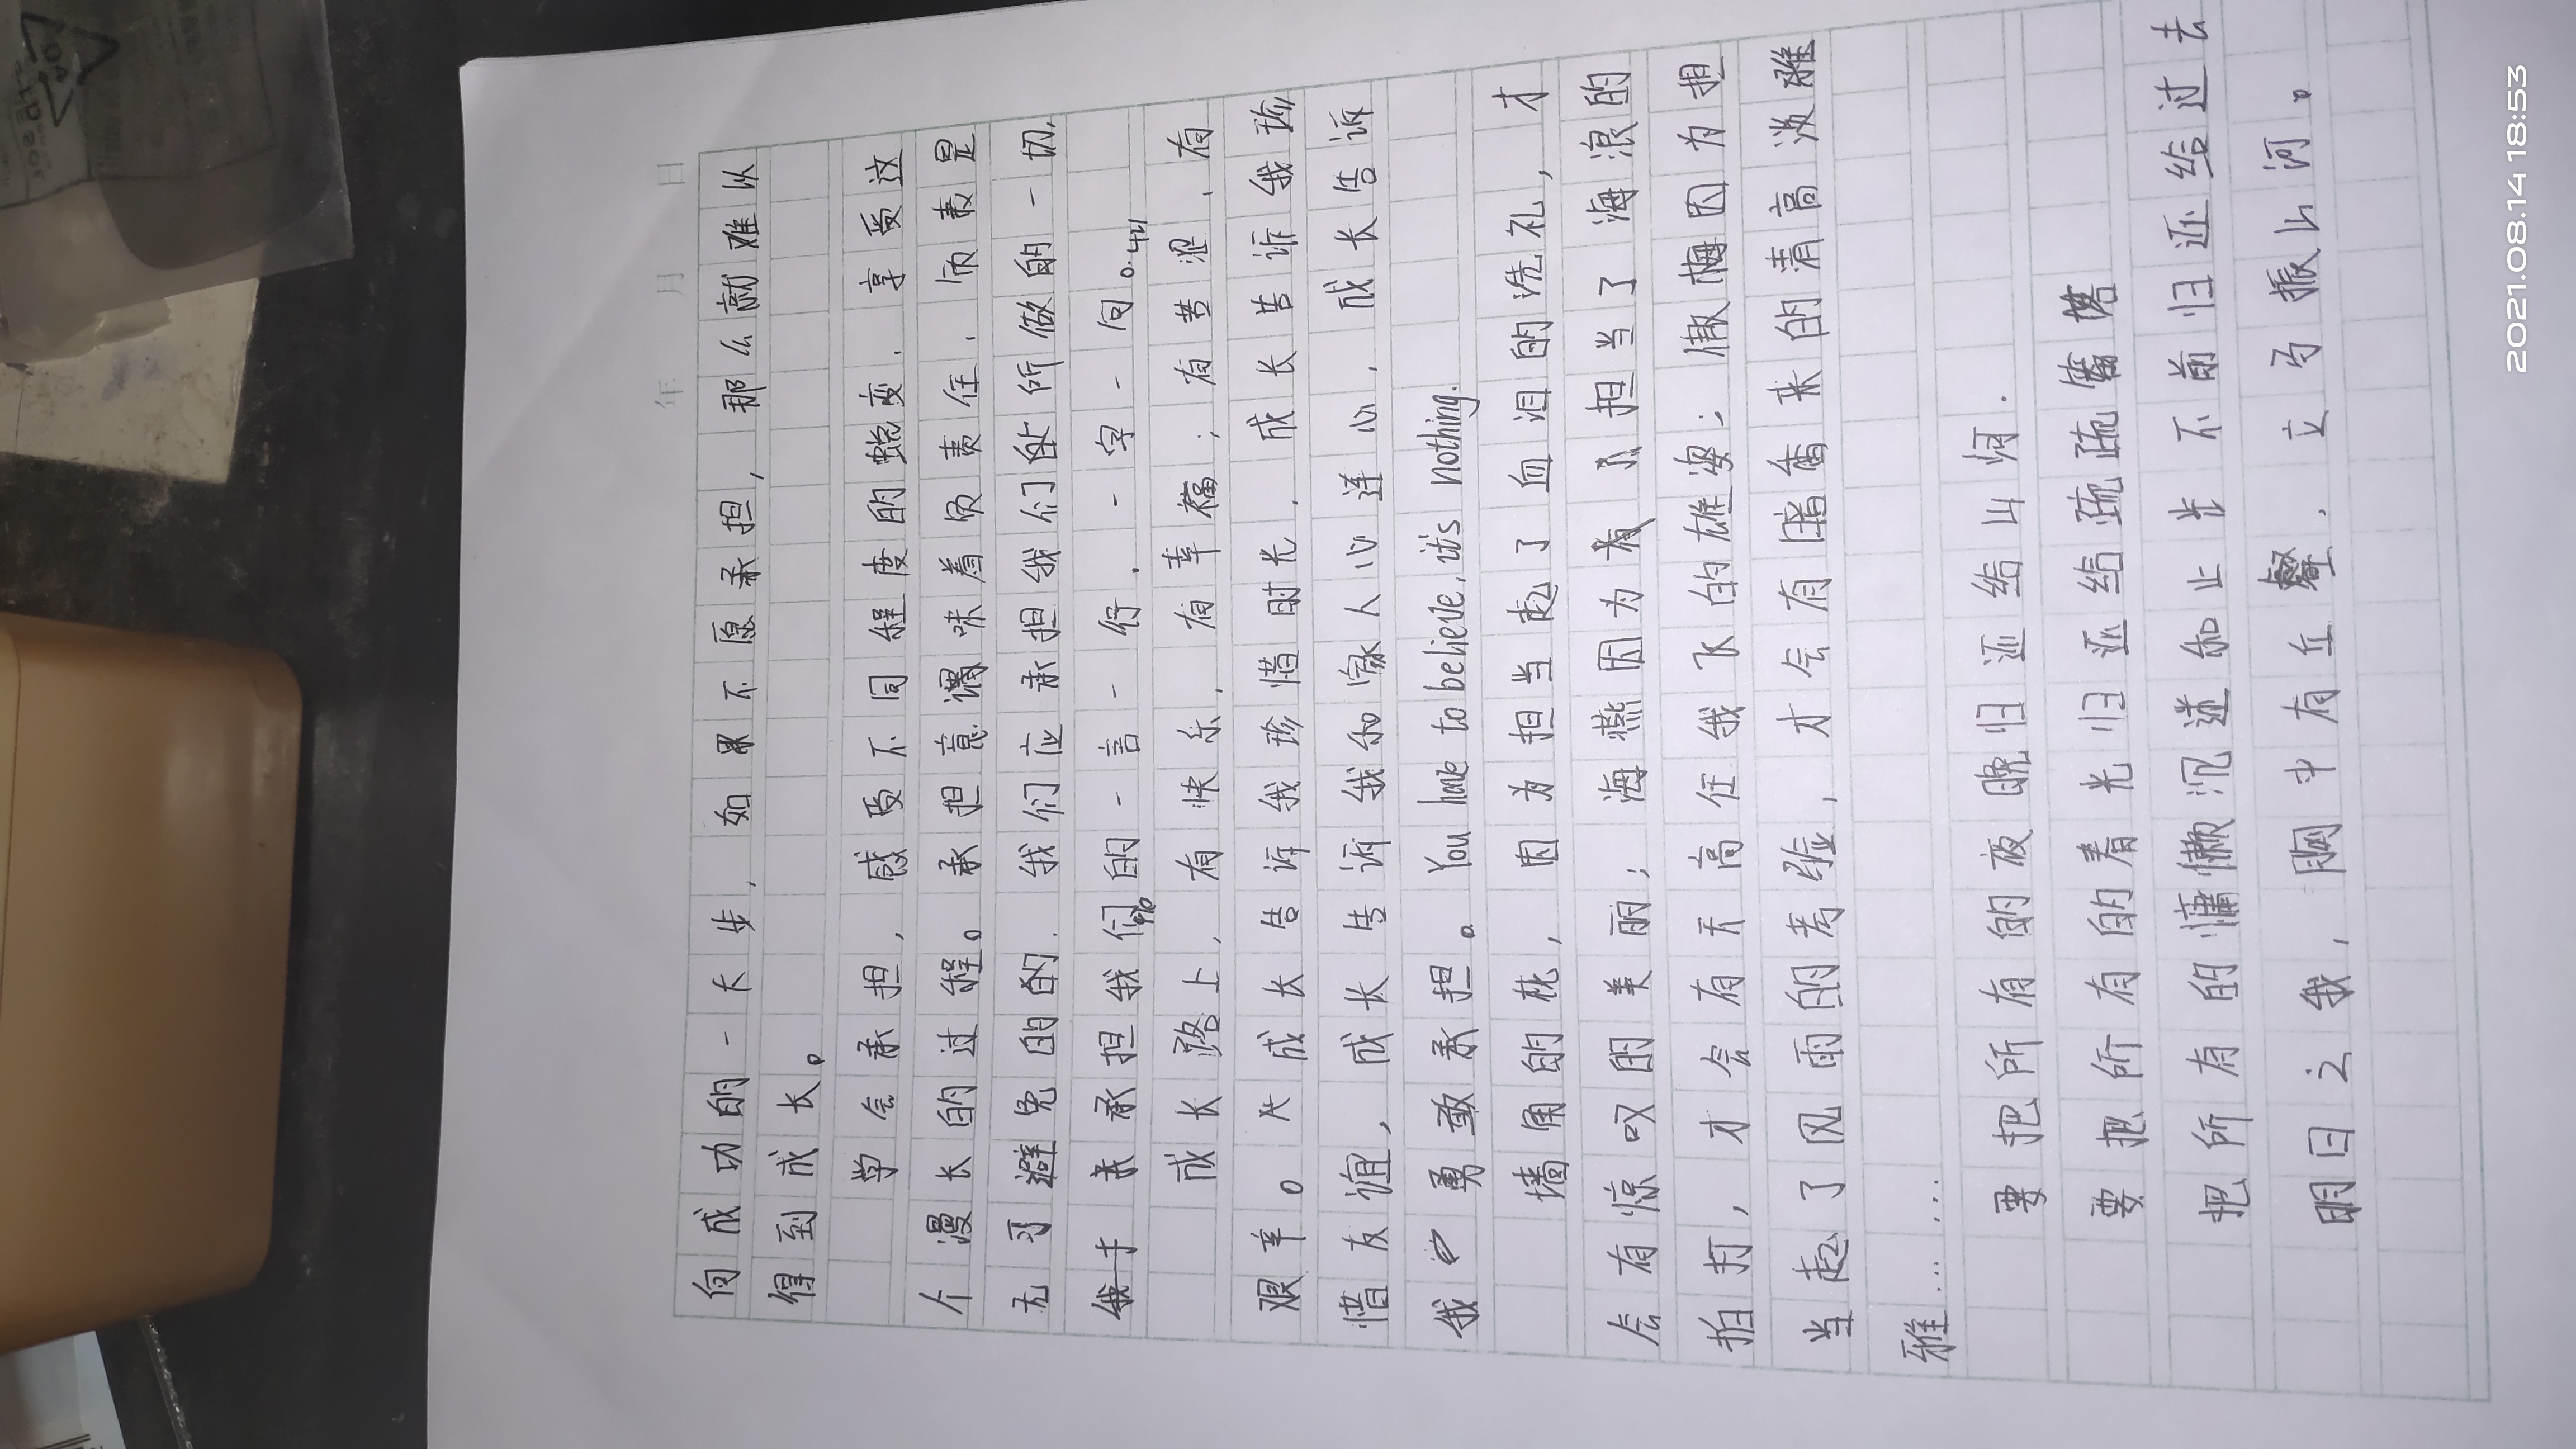 年 月 日
向成功的一大步，如果不愿承担，那么就难以
得到成长。
学会承担，感受不同程度的蜕变，享受这
个漫长的过程。承担意谓味着负责任，而衰是
无可避免的的，我们应承担我们所做的一切，
承担我们的一言一行，一字一句。
成长路上，有快乐，有幸福；有苦涩，有
艰辛。成长告诉我珍惜时光，成长告诉我珍
惜友谊，成长告诉我和家人心连心，成长告诉
我勇敢承担。You have to believe, it's nothing.
墙角的枕，因为担当起了血泪的洗礼，才
会有惊叹的美丽；海燕因为担当了海浪的
拍打，才会有天高任我飞的雄姿；傲梅因为担
当起了风雨的考验，才会有暗香来的清高淡雅
雅……
要把所有的夜晚归还给山河，
要把所有的春光归还给疏疏篱落
把所有的慵懒沉迷和止步不前归还给过去
明日之我，胸中有丘壑，立马振山河。
2021.08.14 18:53